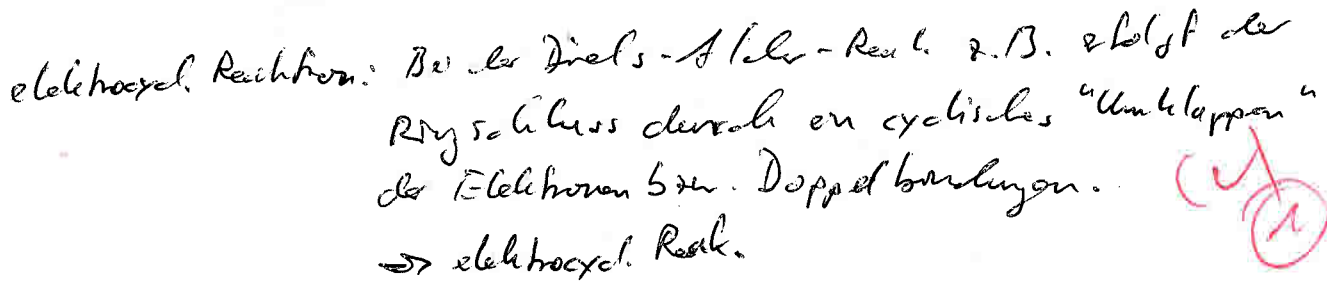 elektrocycl. Reaktion: Bei der Diels-Alder-Reak. z.B. erfolgt der
Ringschluss durch ein cyclisches "Umklappen"
der Elektronen bzw. Doppelbindungen.
(✓)
1
=> elektrocycl. Reak.